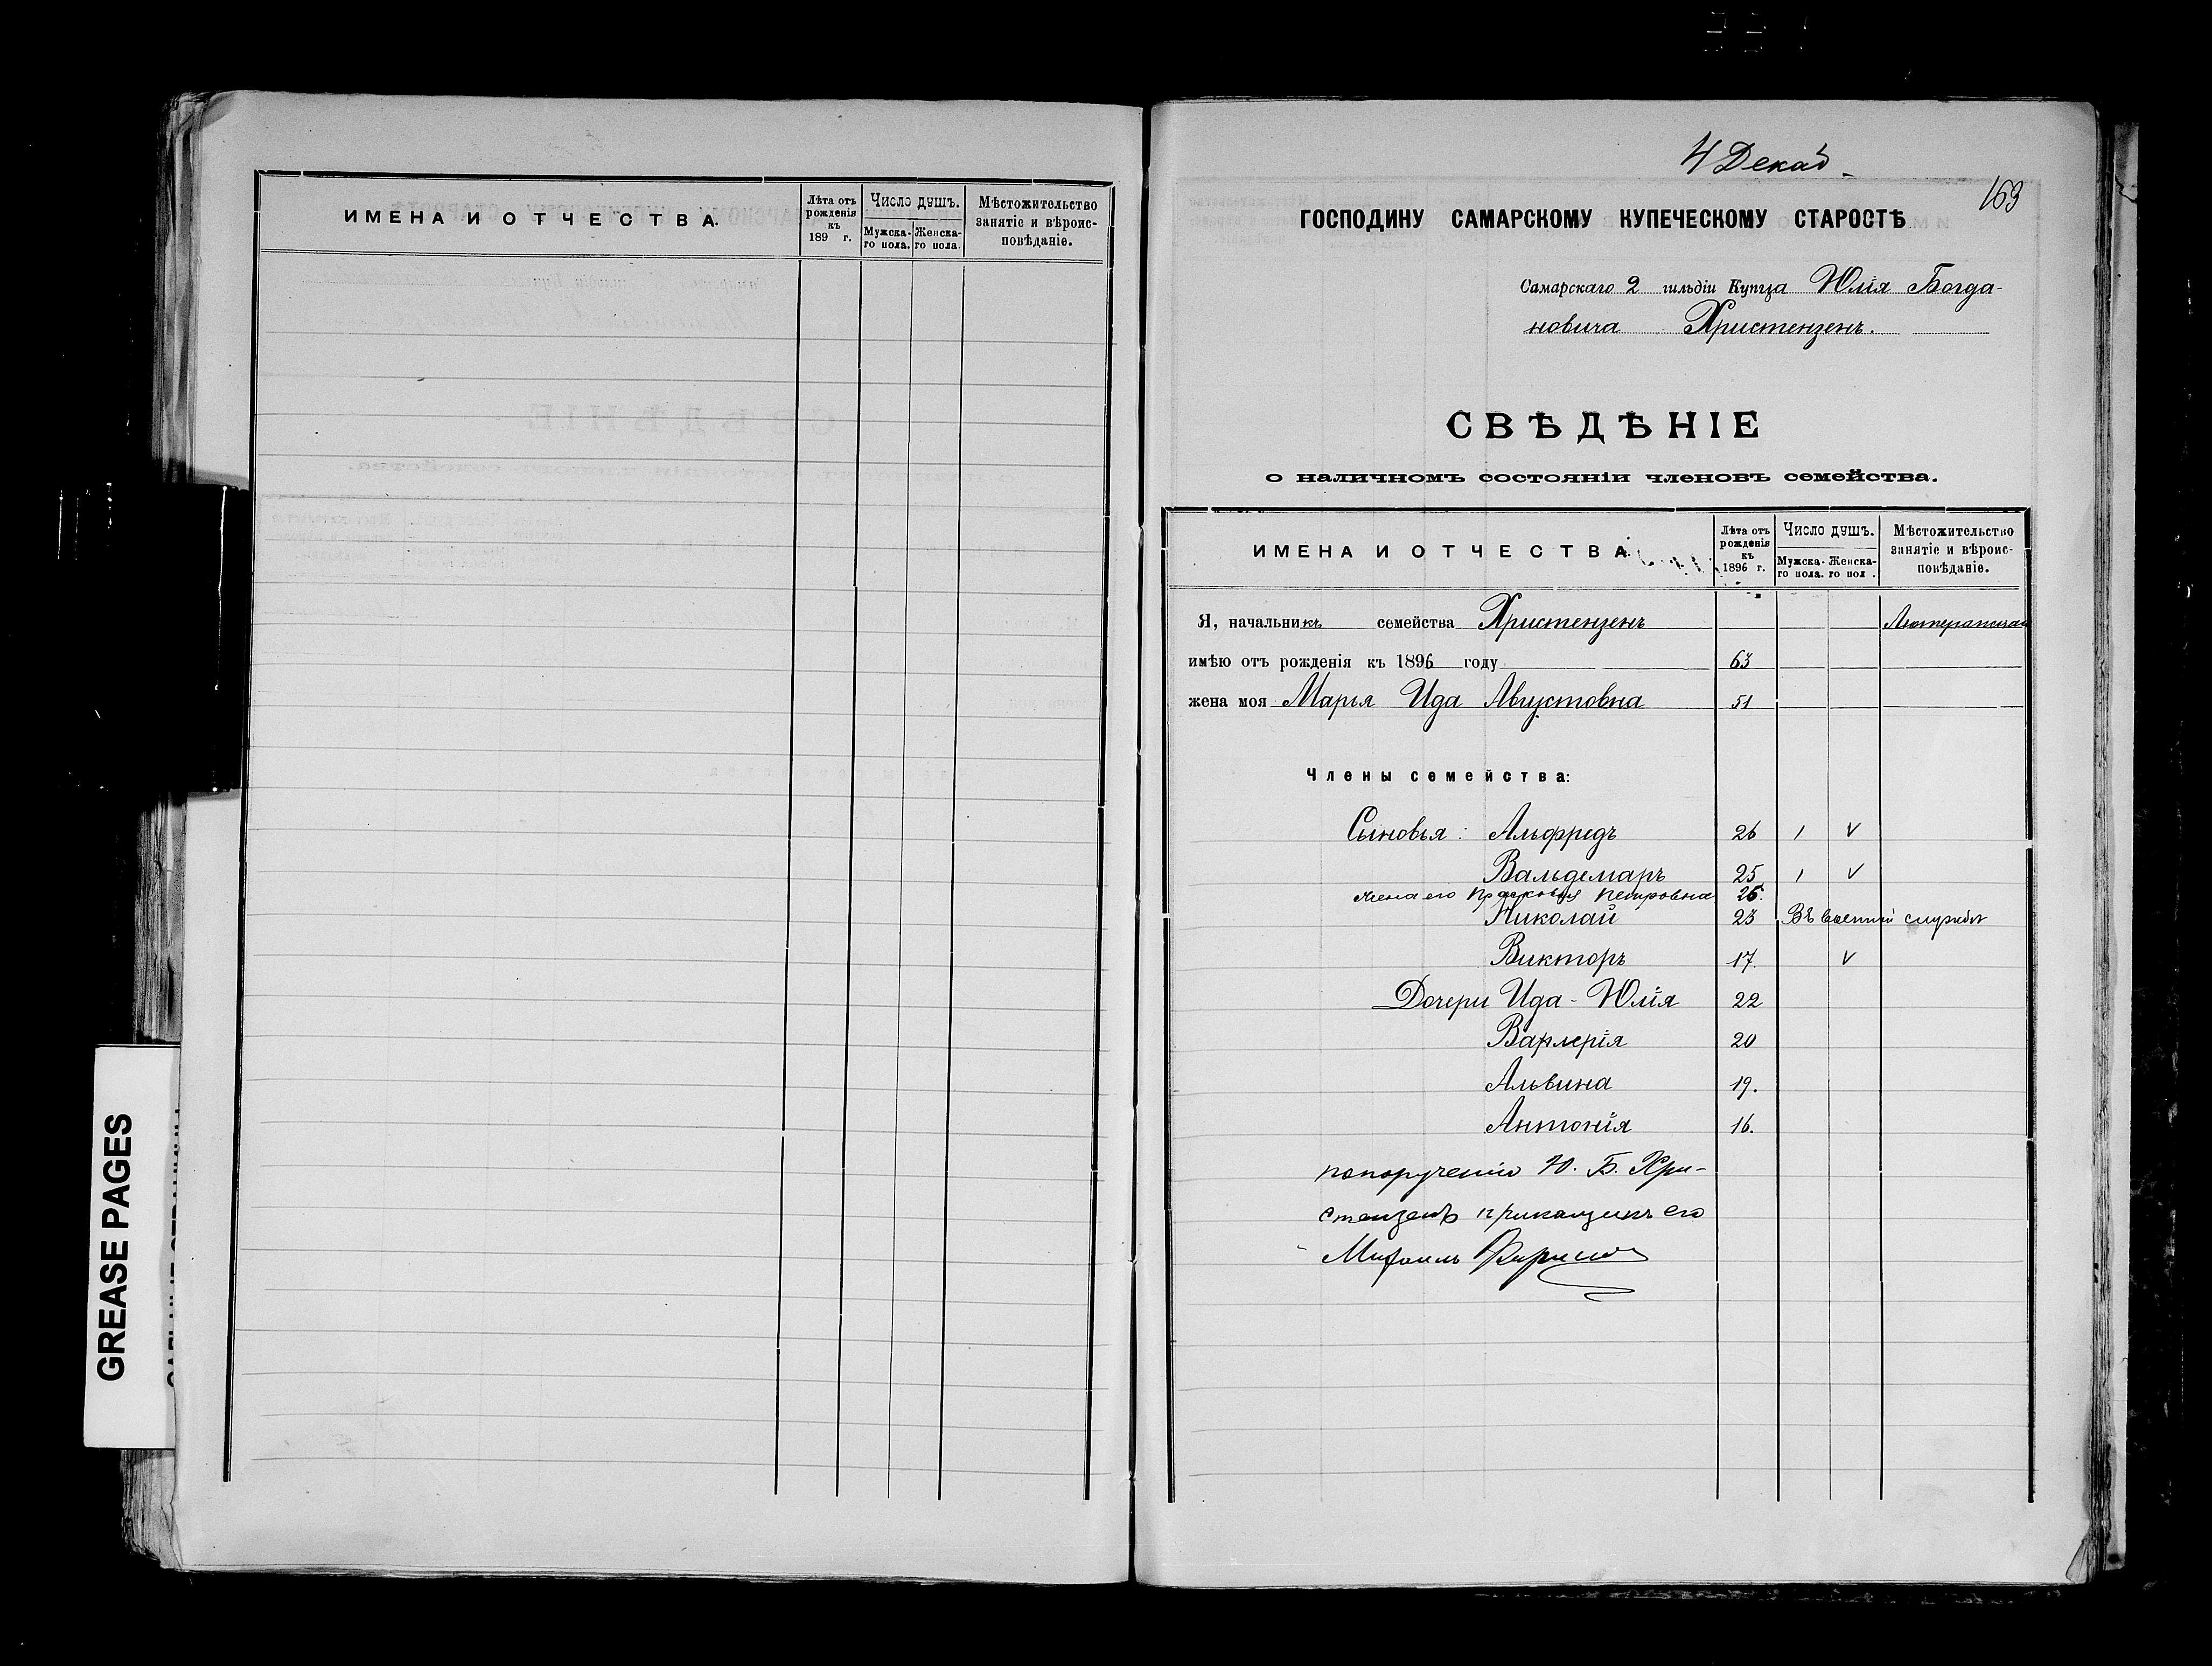 ИМЕНА И ОТЧЕСТВА.
Лѣта отъ рожденія къ 189 г.
Число душъ.
Мужска-го пола.
Женска-го пола.
Мѣстожительство занятіе и вѣроис-повѣданіе.
GREASE PAGES
4 Декаб
163
ГОСПОДИНУ САМАРСКОМУ КУПЕЧЕСКОМУ СТАРОСТѢ
Самарскаго 2 гильдіи Купца Юлія Богда-
новича Христензенъ.
СВѢДѢНІЕ
о наличномъ состояніи членовъ семейства.
ИМЕНА И ОТЧЕСТВА
Лѣта отъ рожденія къ 1896 г.
Число душъ.
Мужска-го пола.
Женска-го пол .
Мѣстожительство занятіе и вѣроис-повѣданіе.
Я, начальникъ семейства Христензенъ Лютеранская
имѣю отъ рожденія къ 1896 году 63
жена моя Марья Ида Августовна 51
Члены семейства:
Сыновья: Альфредъ 26 1 v
Вальдемаръ 25 1 v
жена его Прасковья Петровна 26.
Николай 23 Въ военной службѣ
Викторъ 17. v
Дочери Ида-Юлія 22
Варлерія 20
Альвина 19.
Антонія 16.
попорученію Ю. Б. Хри-
стензенъ прикащикъ его
Михаилъ